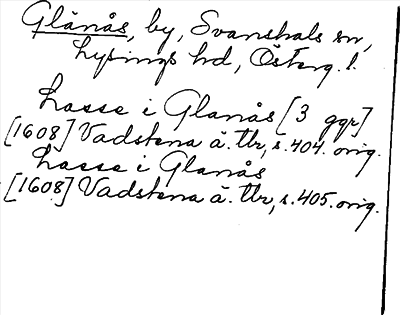 Glänås, by, Svanshals sn,
Lysings hd, Österg. l.
Lasse i Glanås [3 ggr]
[1608] Vadstena ä. tlr, s. 404. orig.
Lasse i Glanås
[1608] Vadstena ä. tlr, s. 405. orig.